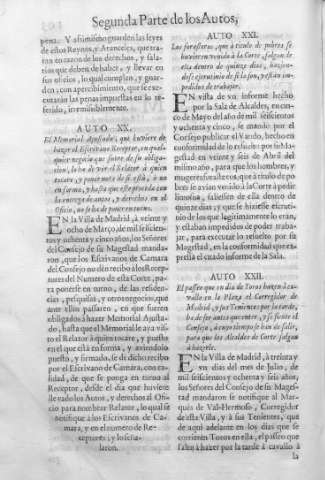 Segunda Parte de los Autos,
pena. Y asimismo guarden las leyes
destos Reynos, y Aranceles, que tra-
tan en razon de los derechos, y sala-
rios que deben de haber, y llevar en
sus oficios, lo qual cumplan, y guar-
den, con apercibimiento, que se exe-
cutaràn las penas impuestas en lo re-
ferido, irremisiblemente.
AUTO XX.
El Memorial Ajustado, que huviere de
hazer el Escrivano Receptor, en qual-
quier negocio que saliere de su obliga-
cion, lo ha de ver el Relator à quien
tocare, y poner nota de si està, ò no
en forma, y hasta que este proveido con
la entrega de autos, y derechos en el
Oficio, no se ha de poner en turno.
EN la Villa de Madrid, à veinte y
ocho de Março, de mil seiscien-
tos y ochenta y cinco años, los Señores
del Consejo de su Magestad manda-
ron, que los Escrivanos de Camara
del Consejo no dèn recetòs à los Recep-
tores del Numero de esta Corte, pa-
ra ponerse en turno, de las residen-
cias, pesquisas, y otros negocios, que
ante ellos passaren, y en que fueren
obligados à hazer Memorial Ajusta-
do, hasta que el Memorial le aya vis-
to el Relator à quien tocare, y puesto
en el que està en forma, y aviendolo
puesto, y firmado, se dè dicho recibo
por el Escrivano de Camara, con ca-
lidad, de que se ponga en turno al
Receptor, desde el dia que huviere
llevado los Autos, y derechos al Ofi-
cio para nombrar Relator, lo qual se
notifique à los Escrivanos de Cama-
ra, y en el numero de Re-
ceptores; y lo seña-
laron.
AUTO XXI.
Los forasteros, que à titulo de pobres se
huvieren venido à la Corte, salgan de
ella dentro de quinze dias, hazien-
dose exercicio de si lo son, y estàn im-
pedidos de trabajar.
EN vista de vn informe hecho
por la Sala de Alcaldes, en cin-
co de Mayo del año de mil seiscientos
y ochenta y cinco, se mandò por el
Consejo publicar el Vando, hecho en
conformidad de lo resuelto por su Ma-
gestad en veinte y seis de Abril del
mismo año, para que los hombres, y
mugeres forasteros, que à titulo de po-
bres se avian venido à la Corte à pedir
limosna, saliessen de ella dentro de
quinze dias; y que se hiziesse escruti-
nio de los que legitimamente lo eràn,
y estaban impedidos de poder traba-
jar, para executar lo resuelto por su
Magestad, en la conformidad que ex-
pressa el citado informe de la Sala.
AUTO XXII.
El passeo que en dia de Toros hazen à ca-
vallo en la Plaza el Corregidor de
Madrid, y sus Tenientes por la tarde,
ha de ser antes que entre, y se siente el
Consejo, à cuyo tiempo se han de salir,
para que los Alcaldes de Corte salgan
à hazerle.
EN la Villa de Madrid, à treinta y
vn dias del mes de Julio, de
mil seiscientos y ochenta y seis años,
los Señores del Consejo de su Mages-
tad mandaron se notifique al Mar-
quès de Val-Hermoso, Corregidor
de esta Villa, y à sus Tenientes, que
de aqui adelante en los dias que se
corrieren Toros en ella, el passeo que
salen à hazer por la tarde à cavallo à
la